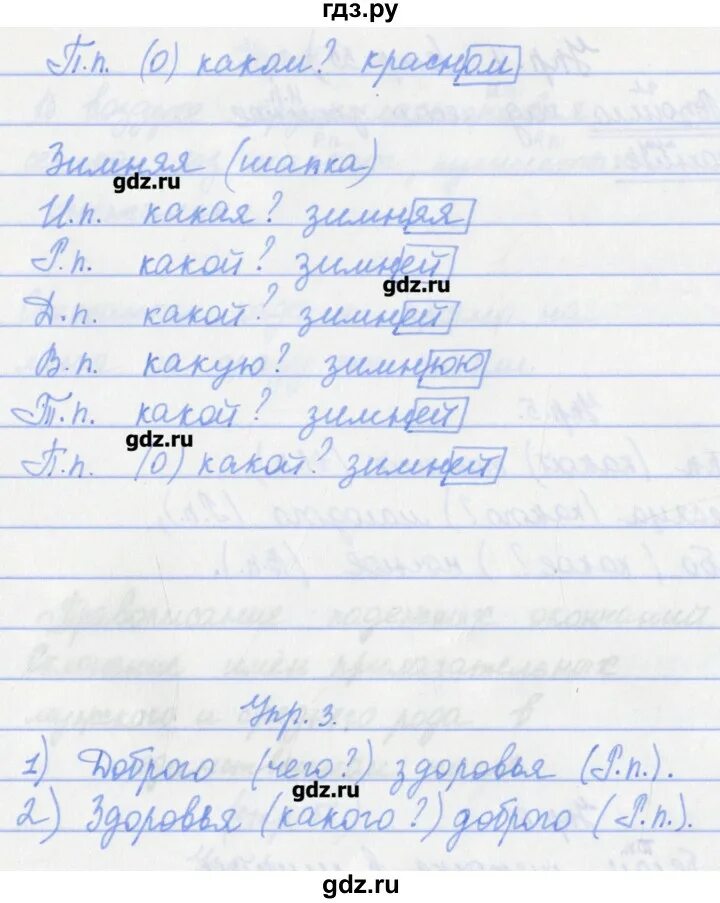 гдз.ру
П.п. (о) каком? красном
Зимняя (шапка)
gdz.ru
И.п. какая? зимняя
Р.п. какой? зимней
gdz.ru
Д.п. какой? зимней
В.п. какую? зимнюю
Т.п. какой? зимней
gdz.ru
П.п. (о) какой? зимней
Упр. 3.
1) Доброго (чего?) здоровья (Р.п.).
gdz.ru
2) Здоровья (какого?) доброго (Р.п.).
gdz.ru